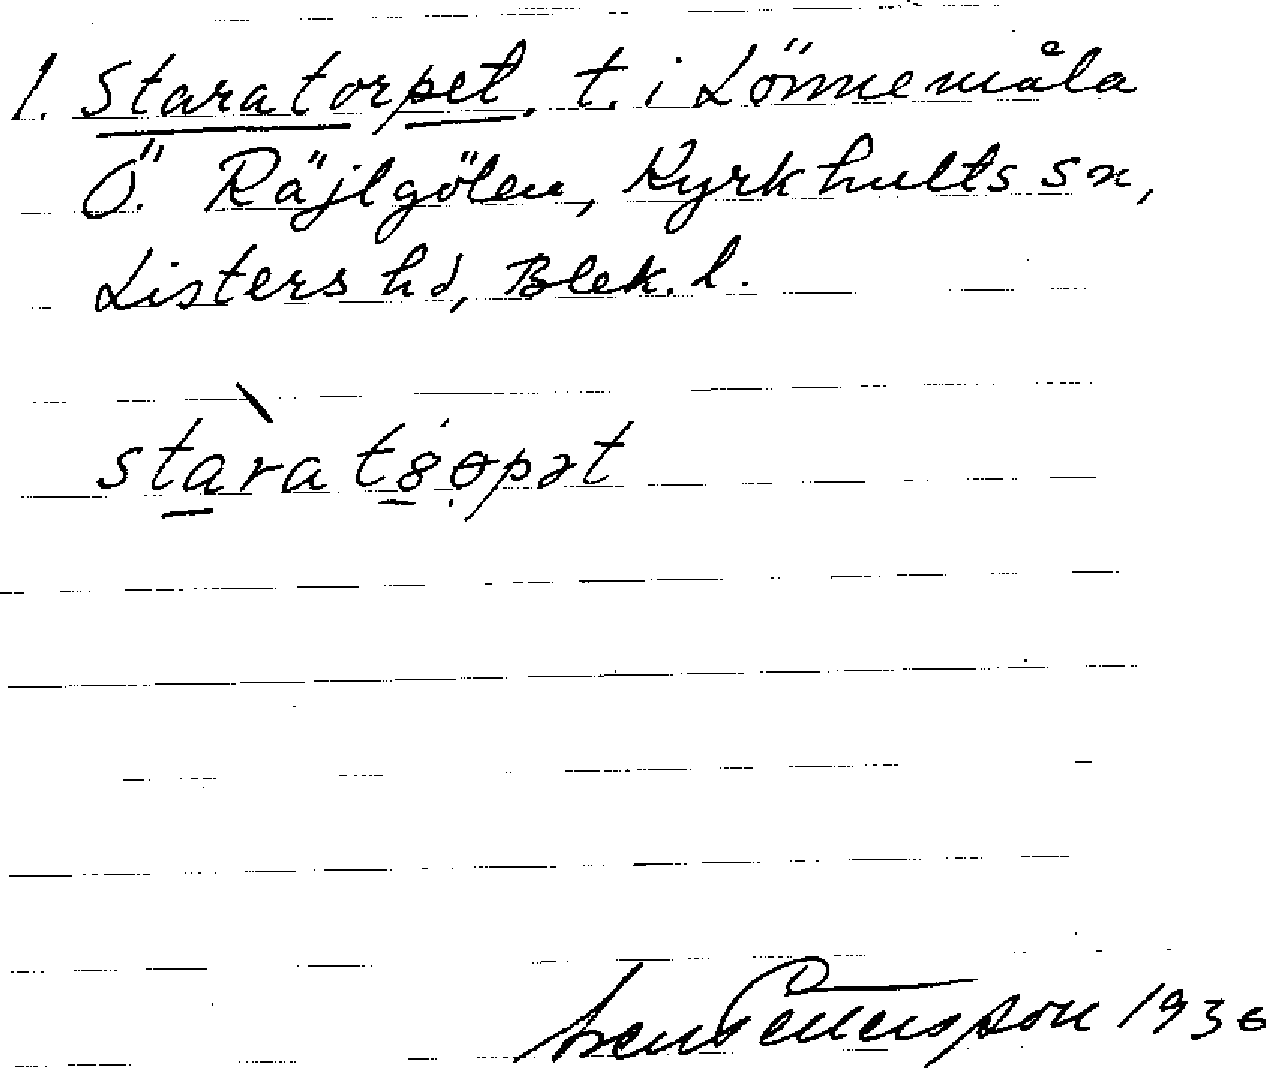 1. Staratorpet. t. i Lönnemåla
Ö. Räjlgölen, Kyrkhults sn,
Listers hd, Blek. l.
stàra tȣɵpət
Sven Pettersson 1936